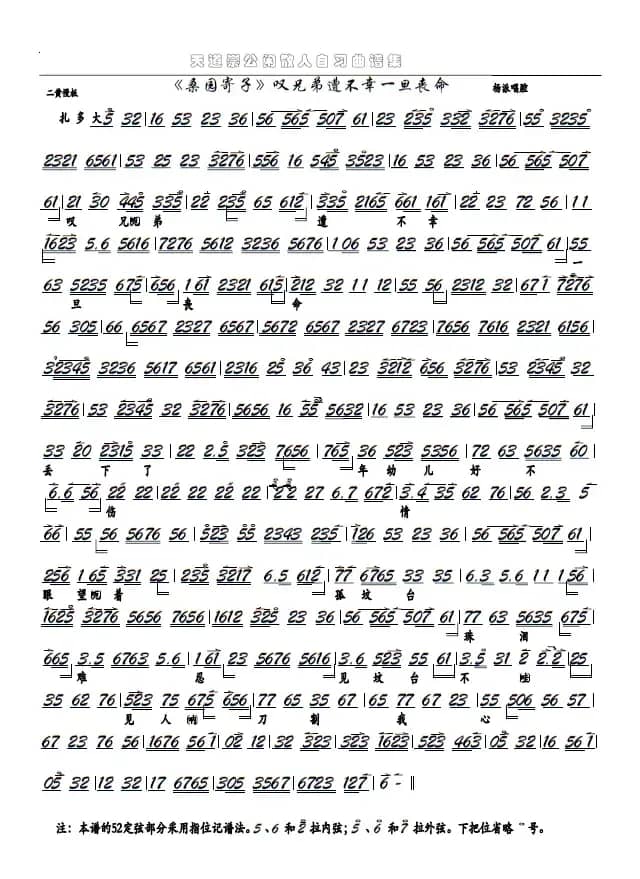 天道崇公闲散人自习曲谱集
《桑园寄子》叹兄弟遭不幸一旦丧命
二黄慢板 杨派唱腔
扎多大5 32|16 53 23 36|56 565 507 61|23 235 332 3276|55 3235
2321 6561|53 25 23 3276|556 16 545 3523|16 53 23 36|56 565 507
61|21 30 445 335|22 235 65 612|335 2165 661 161|22 23 72 56|11
叹 兄呃弟 遭 不 幸
1623 5.6 5616|7276 5612 3236 5676|106 53 23 36|56 565 507 61|55
一
63 5235 675|656 161 2321 615|212 32 11 12|55 56 2312 32|671 7276
旦 丧 命
56 305|66 6567 2327 6567|2327 6567 2327 6723|7656 7616 2321 6156|
32345 3236 5617 6567|2316 25 36 43|23 3212 656 3276|53 2345 32
3276|53 2345 32 3276|5656 16 35 5632|16 53 23 36|56 565 507 61|
33 20 2315 33|22 2.5 323 7656|765 36 523 5356|72 63 5635 60|
丢 下 了 年 幼 儿 好 不
6.6 56|22 22|22 22 22 22|22 27 6.7 672|3.4 35 62 76|56 2.3 5
伤 情
66|55 56 5676 56|523 55 2343 235|126 53 23 36|56 565 507 61|
256 165 331 25|235 3217 6.5 612|77 6765 33 35|6.3 5.6 11 156|
眼 望呃着 孤 坟 台
1625 3276 5656 7656|1612 325 23 36|56 565 507 61|77 63 5635 675|
珠 泪
665 3.5 6763 5.6|161 23 5676 5616|3.6 523 55 61|3.5 31 2 2.2|25
难 忍 见 坟 台 不
35 62 76|523 75 675 656|77 65 35 67|65 77 67 23|55 506 56 57|
见 人 刀 割 我 心
67 23 76 56|1676 561|02 12 32 323|323 1623|523 463|05 32|16 561
05 32 12 17 6765|305 3567|6723 127|6 -‖
注：本谱的52定弦部分采用指位记谱法。5、6 和 2 拉内弦；5、6 和 7 拉外弦。下把位省略 “” 号。